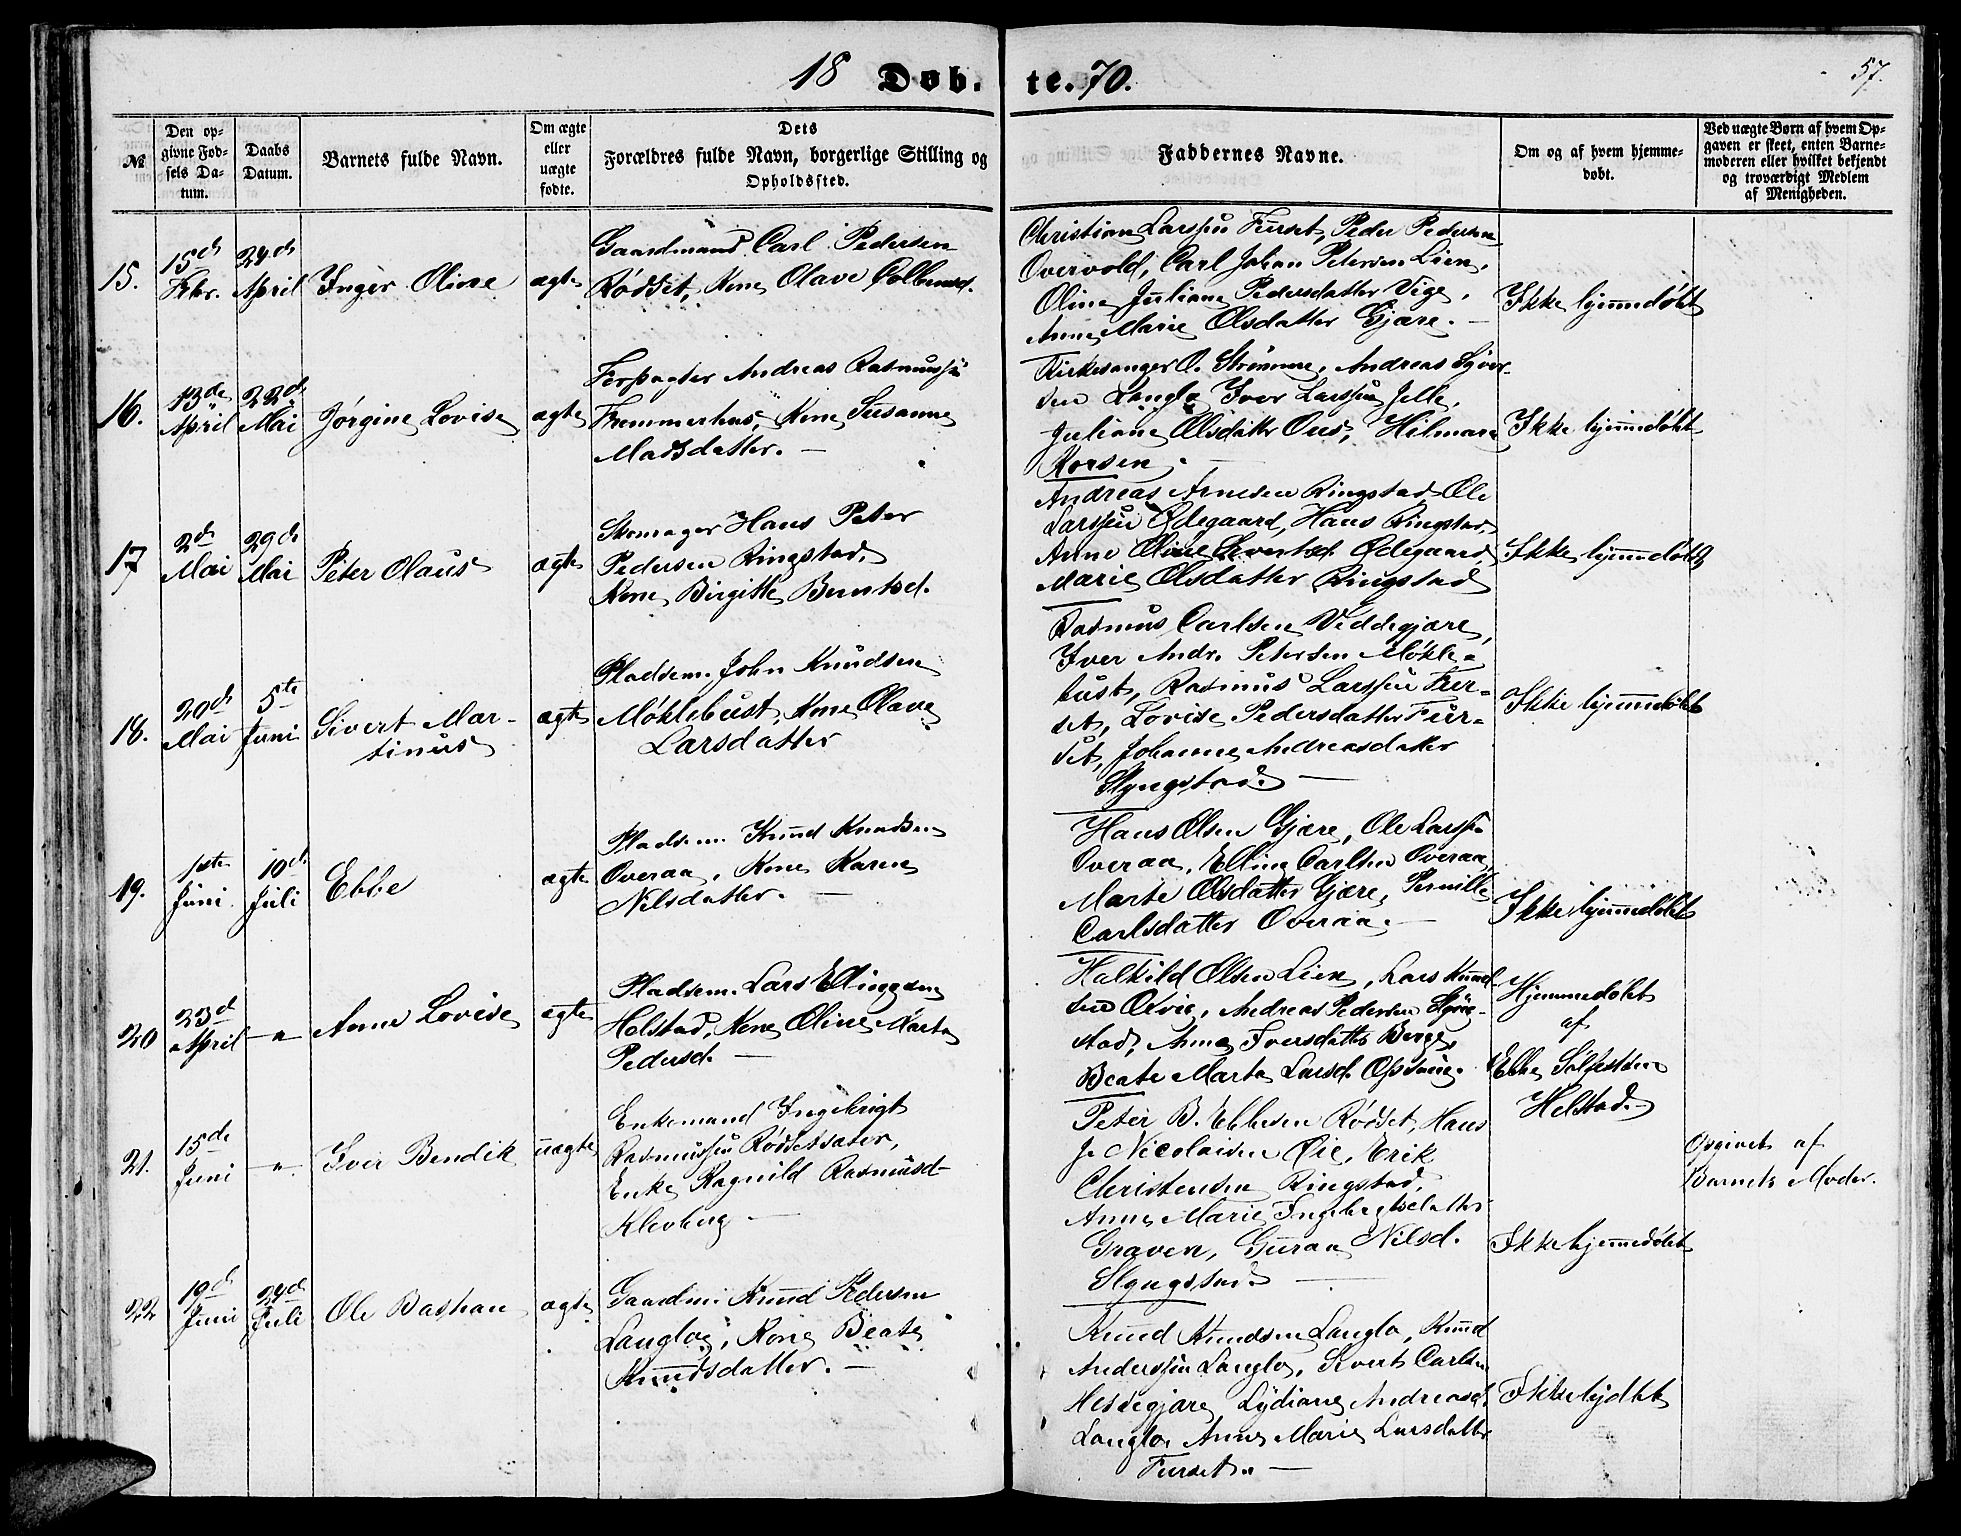 18 Døb- te. 70.
57.
№
Den opgivne Fødsels Datum.
Daabs Datum.
Barnets fulde Navn.
Om ægte eller uægte fødte.
Dets Forældres fulde Navn, borgerlige Stilling og Opholdssted.
Faddernes Navne.
Om og af hvem hjemmedøbt.
Ved uægte Børn af hvem Opgaven er skeet, enten Barnemoderen eller hvilket bekjendt og troværdigt Medlem af Menigheden.
15.
15de Febr.
24de April
Inger Oline
ægte
Gaardmand Carl Pedersen
Rødset, Kone Olave Colbensd.
Christian Larssen Furset, Peder Pedersen
Overvold, Carl Johan Petersen Lien,
Oline Juliane Pedersdatter Vige,
Anne Marie Olsdatter Gjære. —
Ikke hjemmedøbt
16.
13de April
22de Mai
Jørgine Lovise
ægte
Forpagter Andreas Rasmussen
Fremmerhus, Kone Susanne
Madsdatter. —
Kirkesanger O. Strømme, Andreas Syver-
sen Langlo Iver Larssen Jelle,
Juliane Olsdatter Ous, Hilmar
Korsen.
Ikke hjemmedøbt
17
2de Mai
29de Mai
Peter Olaus
ægte
Skomager Hans Peter
Pedersen Ringstad,
Kone Birgitte Berntsd.
Andreas Arnesen Ringstad Ole
Larssen Ødegaard, Hans Ringstad,
Anne Oline Sivertsd Ødegaard,
Marie Olsdatter Ringstad
Ikke hjemmedøbt
18.
20de Mai
5te Juni
Sivert Mar-
tinus
ægte
Pladsem. John Knudsen
Møklebust, Kone Olave
Larsdatter
Rasmus Carlsen Veddegjære,
Iver Andr. Petersen Møkle-
bust, Rasmus Larssen Fur-
set, Lovise Pedersdatter Fur-
set, Johanne Andreasdatter
Slyngstad. —
Ikke hjemmedøbt
19.
1ste Juni
10de Juli
Ebbe
ægte
Pladsem. Knud Knudsen
Overaa, Kone Karen
Nilsdatter. —
Hans Olsen Gjære, Ole Larss.
Overaa, Elling Carlsen Overaa
Marte Olsdatter Gjære, Pernille
Carlsdatter Overaa. —
Ikke hjemmedøbt
20
23de April
— " —
Anne Lovise
ægte
Pladsem. Lars Ellingsen
Helstad, Kone Oline Marta
Pedersd. —
Halkild Olsen Lien, Lars Knud-
sen Øvrie, Andreas Pedersen Slyng-
stad, Anne Iversdatter Berge,
Beate Marta Larsd.
Hjemmedøbt
af
Ebbe
Helstad. —
21.
15de Juni
— " —
Iver Bendik
uægte
Enkemand Ingebrigt
Rasmussen Rødsetsæter,
Enke Ragnild Rasmusd-
Klevberg —
Peter B. Ebbesen Rødset, Hans
J. Nicolaisen Øie, Erik
Christensen Ringstad,
Anne Marie Ingebrigtsdatter
Graven, Guraa Nilsd.
Slyngstad. —
Ikke hjemmedøbt
Opgivet af
Barnets Moder.
22
19de Juni
24de Juli
Ole Bastian
ægte
Gaardm. Knud Pedersen
Langlo, Kone Beate
Knudsdatter. —
Knud Knudsen Langlo, Knud
Anderssen Langlo, Sivert Carlsen
Hessegjære Lydiane Andreasd.
Langlo, Anne Marie Larsdatter
Furset. —
Ikke hjdøbt